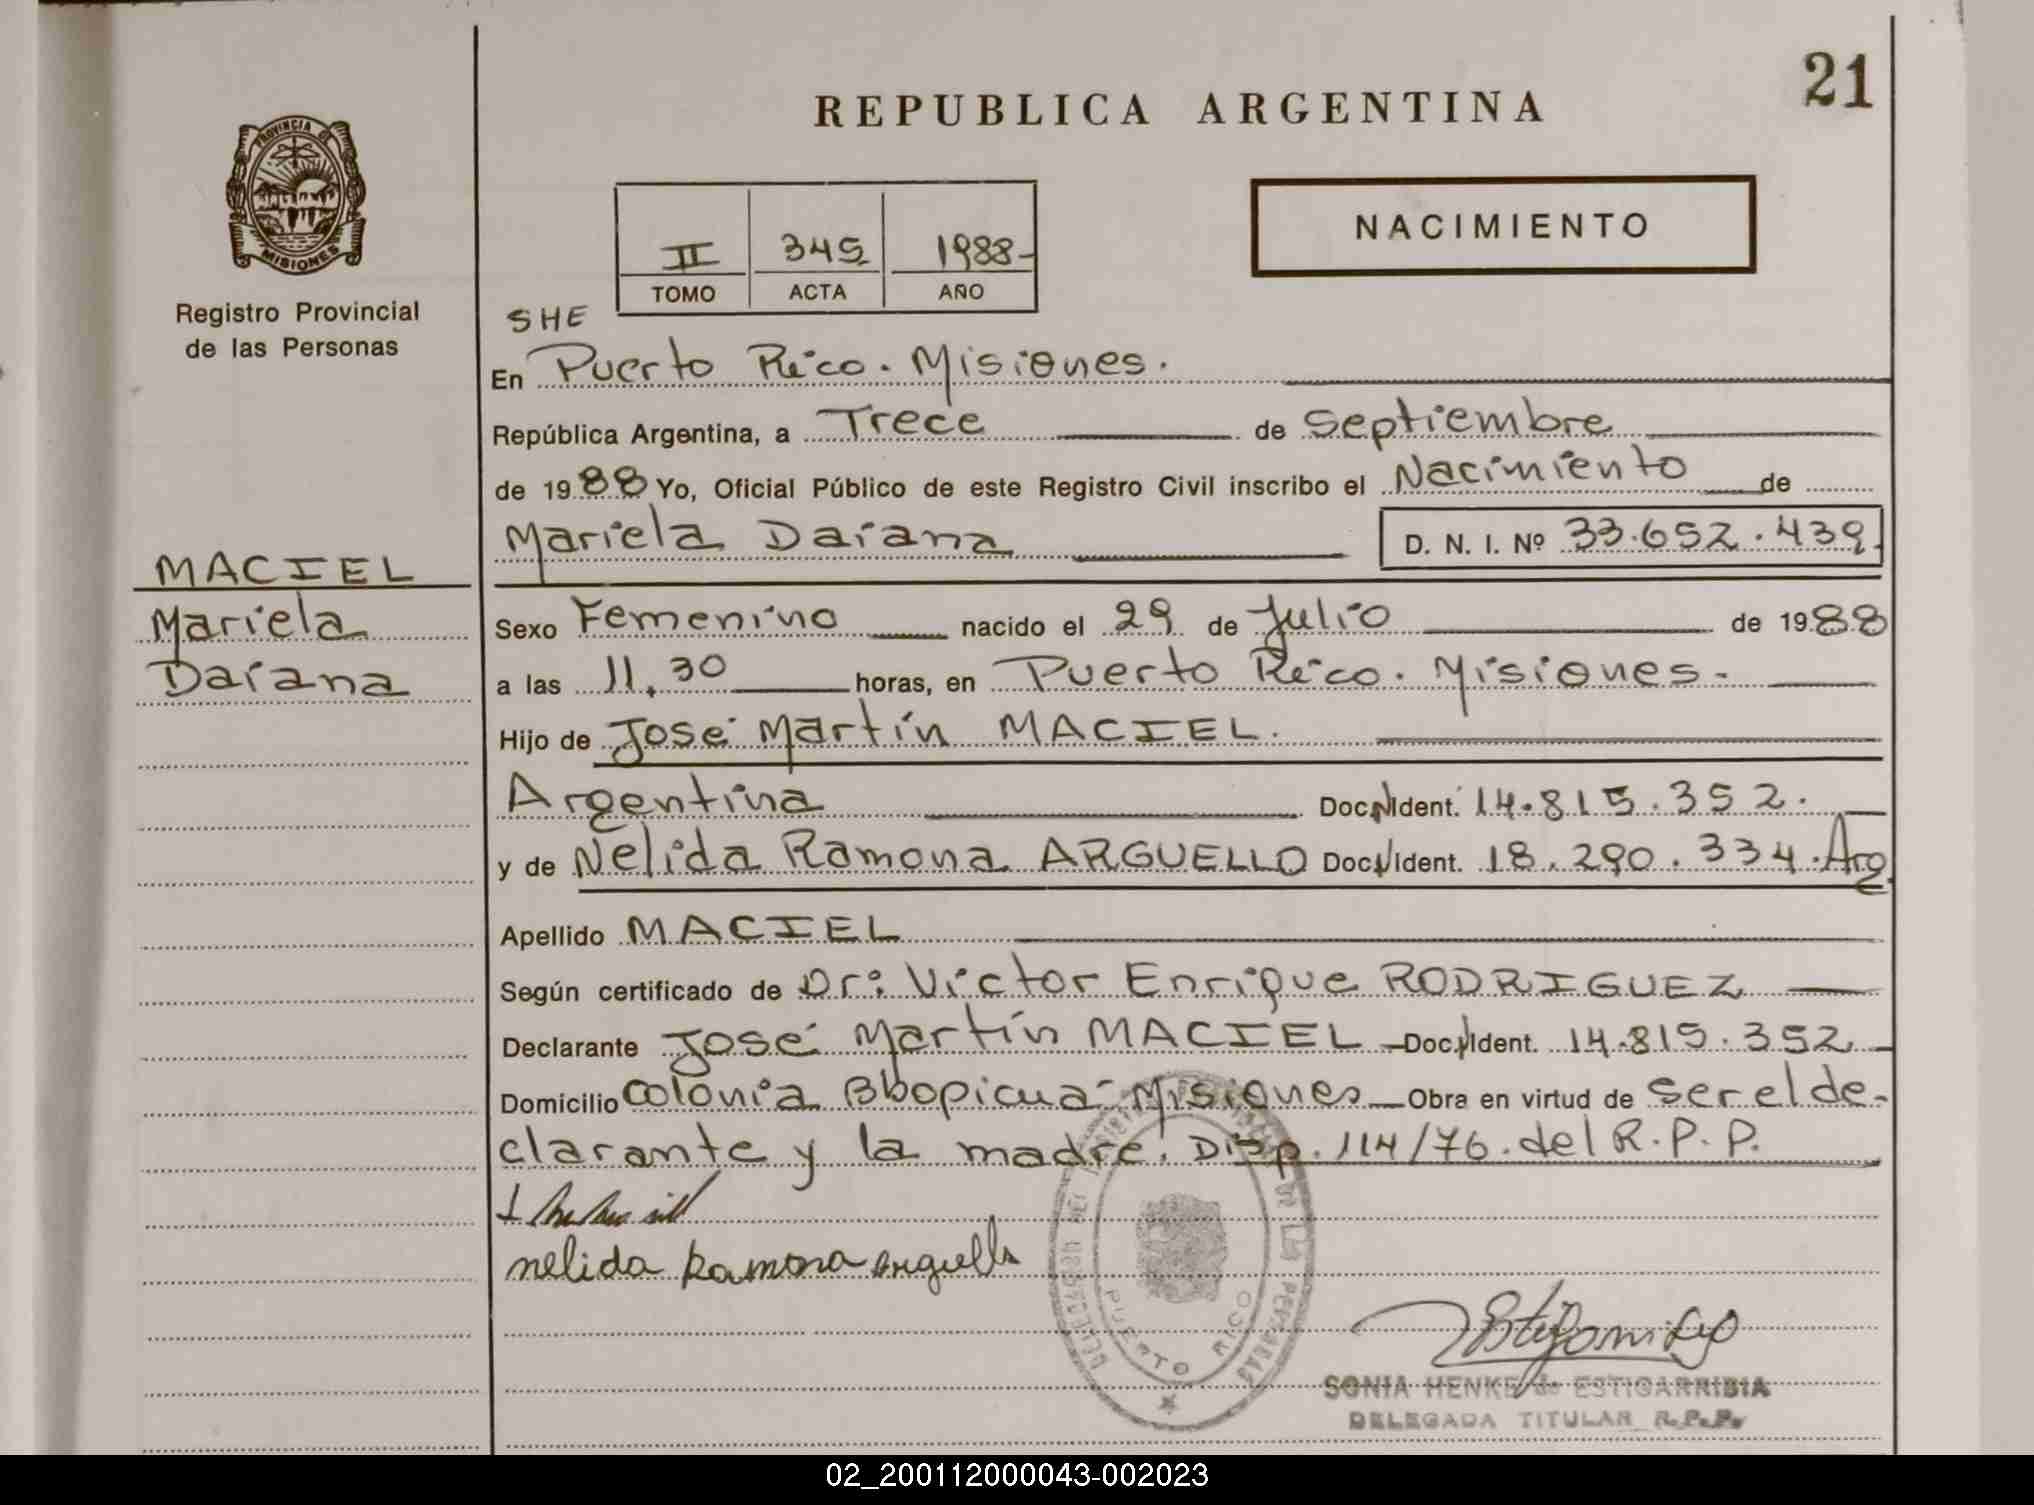 21
REPUBLICA ARGENTINA
PROVINCIA DE
MISIONES
Registro Provincial
de las Personas
NACIMIENTO
II 345 1988-
TOMO ACTA AÑO
SHE
En Puerto Rico. Misiones.
República Argentina, a Trece de Septiembre
de 1988 Yo, Oficial Público de este Registro Civil inscribo el Nacimiento de
Mariela Daiana D. N. I. Nº 33.652.439
MACIEL
Mariela
Daiana
Sexo Femenino nacido el 29 de Julio de 1988
a las 11.30 horas, en Puerto Rico. Misiones.
Hijo de José Martín MACIEL.
Argentina Doc. Ident. 14.815.352.
y de Nelida Ramona ARGUELLO Doc. Ident. 18.290.334. Arg
Apellido MACIEL
Según certificado de Dr: Victor Enrique RODRIGUEZ
Declarante José Martín MACIEL Doc. Ident. 14.815.352
Domicilio Colonia Bbopicuá Misiones Obra en virtud de ser el de-
clarante y la madre. Disp. 114/76. del R.P.P.
nelida Ramona arguello
PUERTO RICO
SONIA HENKE de ESTIGARRIBIA
DELEGADA TITULAR R.P.P.
02_200112000043-002023